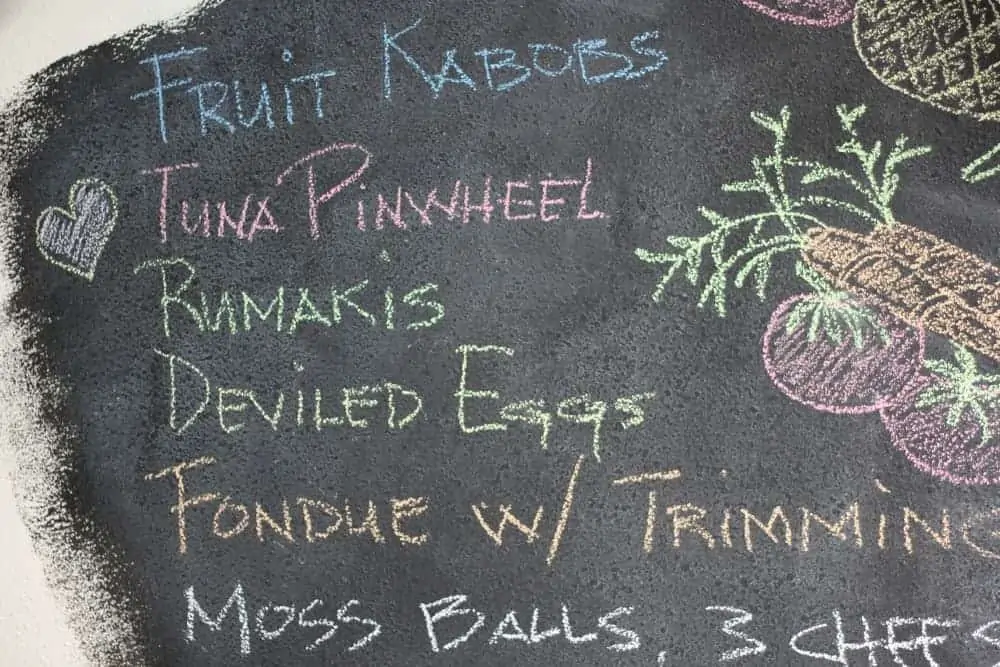 Fruit Kabobs
Tuna Pinwheel
Rumakis
Deviled Eggs
Fondue w/ Trimming
Moss Balls, 3 Chees